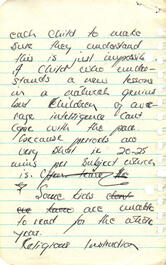 each child to make
sure they understand
this is just impossible
A child who under-
stands a new lesson
is a natural genius
but Children of ave-
rage intelligence Cant
Cope with the pace
because periods are
very short in 20-25
mins per Subject which
is.
Some kids
are unable
to read for the whole
year.
Religious Instruction